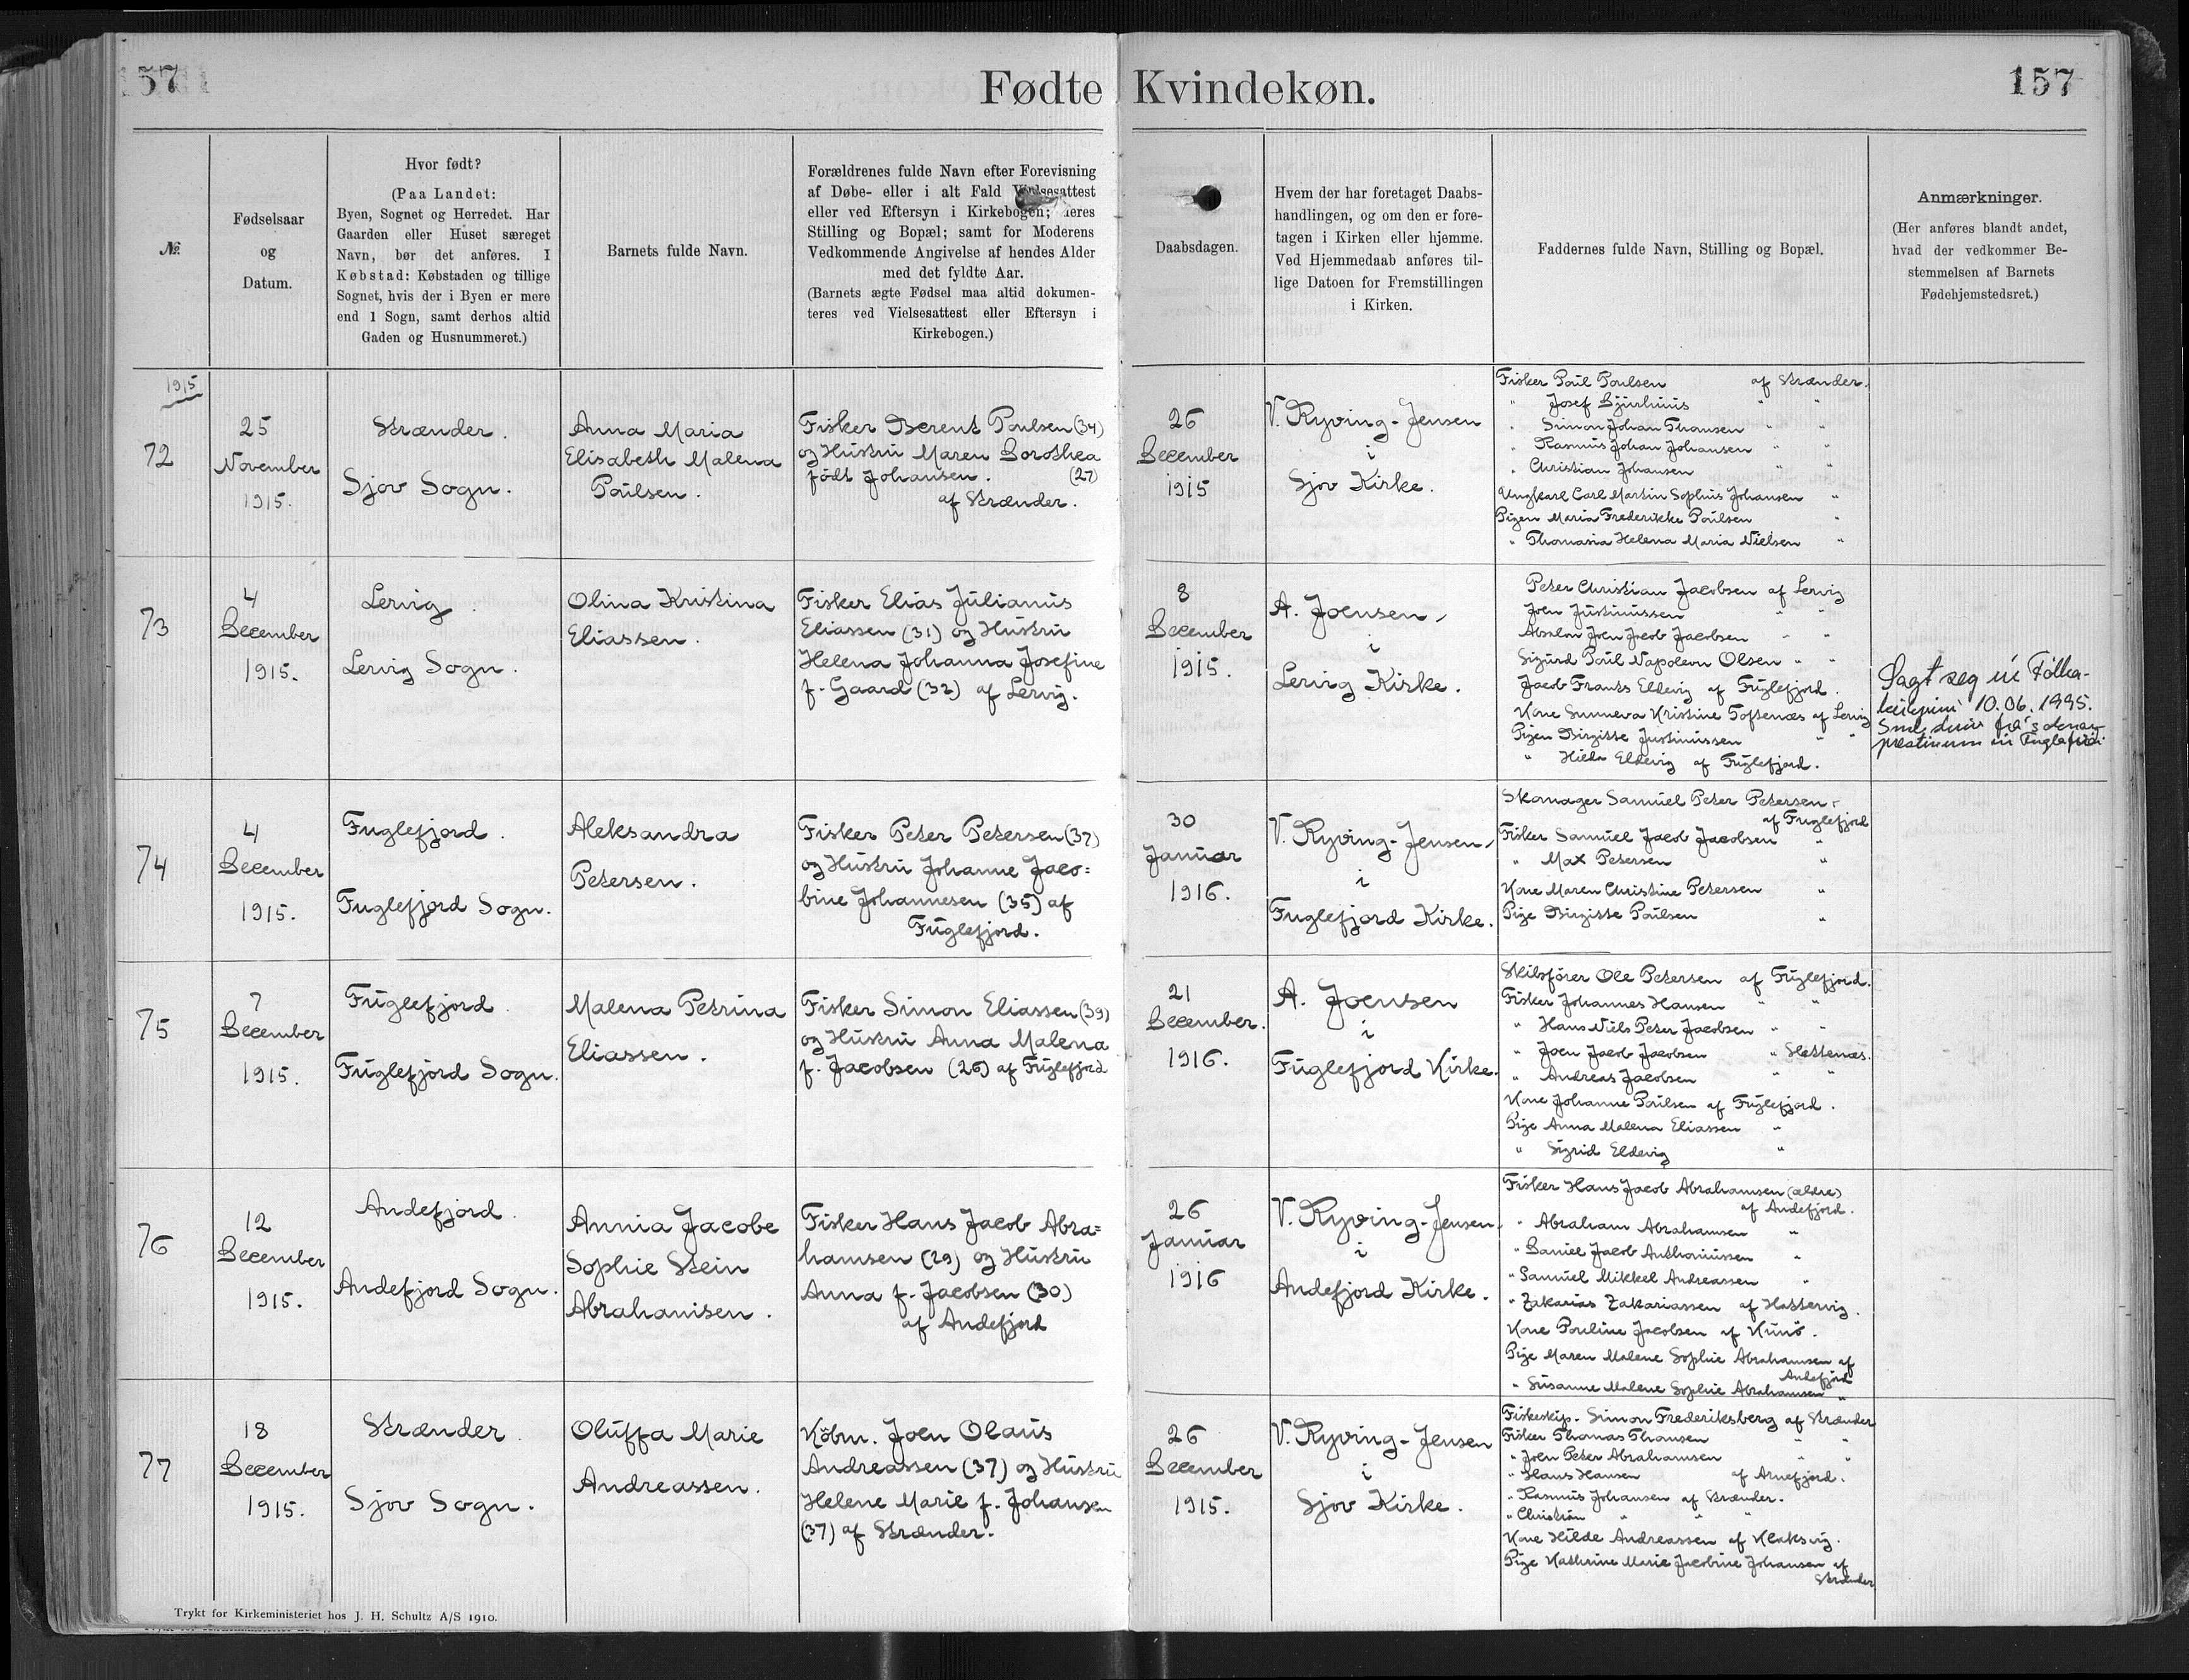 157
Fødte Kvindekøn.
157
№
Fødselsaar
og
Datum.
Hvor født?
(Paa Landet:
Byen, Sognet og Herredet. Har
Gaarden eller Huset særeget
Navn, bør det anføres. I
Købstad: Købstaden og tillige
Sognet, hvis der i Byen er mere
end 1 Sogn, samt derhos altid
Gaden og Husnummeret.)
Barnets fulde Navn.
Forældrenes fulde Navn efter Forevisning
af Døbe- eller i alt Fald Vielsesattest
eller ved Eftersyn i Kirkebogen; deres
Stilling og Bopæl; samt for Moderens
Vedkommende Angivelse af hendes Alder
med det fyldte Aar.
(Barnets ægte Fødsel maa altid dokumen-
teres ved Vielsesattest eller Eftersyn i
Kirkebogen.)
Daabsdagen.
Hvem der har foretaget Daabs-
handlingen, og om den er fore-
tagen i Kirken eller hjemme.
Ved Hjemmedaab anføres til-
lige Datoen for Fremstillingen
i Kirken.
Faddernes fulde Navn, Stilling og Bopæl.
Anmærkninger.
(Her anføres blandt andet,
hvad der vedkommer Be-
stemmelsen af Barnets
Fødehjemstedsret.)
1915
72
25
November
1915.
Strænder.
Sjov Sogn.
Anna Maria
Elisabeth Malena
Poulsen.
Fisker Berent Poulsen (34)
og Hustru Maren Dorothea
født Johansen. (27)
af Strænder.
26
December
1915
V. Ryving-Jensen
i
Sjov Kirke.
Fisker Poul Poulsen af Strænder.
" Josef Bjurhuus " "
" Simon Johan Thomsen " "
" Rasmus Johan Johansen " "
" Christian Johansen " "
Ungkarl Carl Martin Sophus Johansen "
Pigen Maria Frederikke Poulsen "
" Thomasia Helena Maria Nielsen "
73
4
December
1915.
Lervig.
Lervig Sogn.
Olina Kristina
Eliassen.
Fisker Elias Julianus
Eliassen (31) og Hustru
Helena Johanna Josefine
f. Gaard (32) af Lervig.
8
December
1915.
A. Joensen,
i
Lervig Kirke.
Peter Christian Jacobsen af Lervig
Joen Justinussen " "
Absalon Joen Jacob Jacobsen " "
Sigurd Poul Napoleon Olsen " "
Jacob Frants Eldevig af Fuglefjord.
Kone Sunneva Kristine Toftenæs af Lervig
Pigen Birgitte Justinussen " "
" Hilda Eldevig af Fuglefjord.
Sagt seg úr Fólka-
kirkjuni 10.06.1995.
74
4
December
1915.
Fuglefjord.
Fuglefjord Sogn.
Aleksandra
Petersen.
Fisker Peter Petersen (37)
og Hustru Johanne Jaco=
bine Johannesen (35) af
Fuglefjord.
30
Januar
1916.
V. Ryving-Jensen,
i
Fuglefjord Kirke.
Skomager Samuel Peter Petersen
af Fuglefjord
Fisker Samuel Jacob Jacobsen "
" Max Petersen "
Kone Maren Christine Petersen "
Pige Birgitte Poulsen "
75
7
December
1915.
Fuglefjord.
Fuglefjord Sogn.
Malena Petrina
Eliassen.
Fisker Simon Eliassen (39)
og Hustru Anna Malena
f. Jacobsen (26) af Fuglefjord
21
December.
1916.
A. Joensen
i
Fuglefjord Kirke.
Skibsfører Ole Petersen af Fuglefjord.
Fisker Johannes Hansen " "
" Hans Niels Peter Jacobsen " "
" Joen Jacob Jacobsen "
" Andreas Jacobsen " "
Kone Johanne Poulsen af Fuglefjord.
Pige Anna Malena Eliassen "
" Sigrid Eldevig "
76
12
December
1915.
Andefjord.
Andefjord Sogn.
Annia Jacobe
Sophie Stein
Abrahamsen.
Fisker Hans Jacob Abra=
hamsen (29) og Hustru
Anna f. Jacobsen (30)
af Andefjord
26
Januar
1916
V. Ryving-Jensen,
i
Andefjord Kirke.
Fisker Hans Jacob Abrahamsen (ældre)
af Andefjord.
" Abraham Abrahamsen "
" Daniel Jacob Anthoniussen "
" Samuel Mikkel Andreassen "
" Zakarias Zakariassen af Hattervig.
Kone Pouline Jacobsen af Kunø.
Pige Maren Malene Sophie Abrahamsen af
Andefjord
" Susanne Malene Sophie Abrahamsen "
77
18
December
1915.
Strænder.
Sjov Sogn.
Oluffa Marie
Andreassen.
Købm. Joen Olaus
Andreassen (37) og Hustru
Helene Marie f. Johansen
(37) af Strænder.
26
December
1915.
V. Ryving-Jensen
i
Sjov Kirke.
Fiskeskip. Simon Frederiksberg af Strænder
Fisker Thomas Thomsen " "
" Joen Peter Abrahamsen " "
" Hans Hansen af Arnefjord.
" Rasmus Johansen af Strænder.
" Christian " " "
Kone Hilde Andreassen af Klaksvig.
Pige Kathrine Marie Jacobine Johansen af
Strænder
Trykt for Kirkeministeriet hos J. H. Schultz A/S 1910.